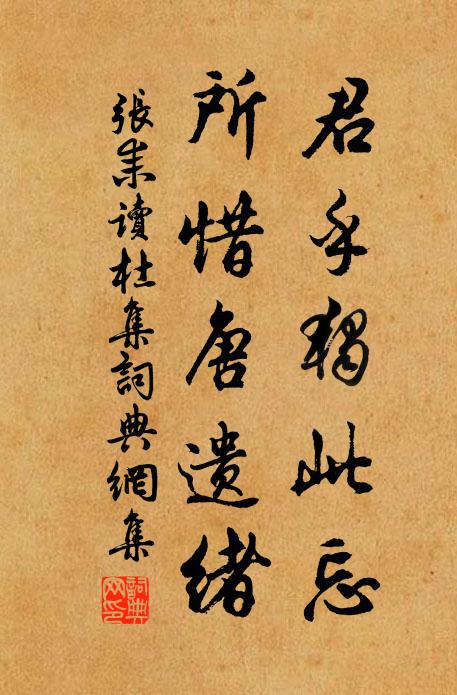 君乎独此忘
所惜唐遗绪
張耒讀杜集詞典網集
詞典網印